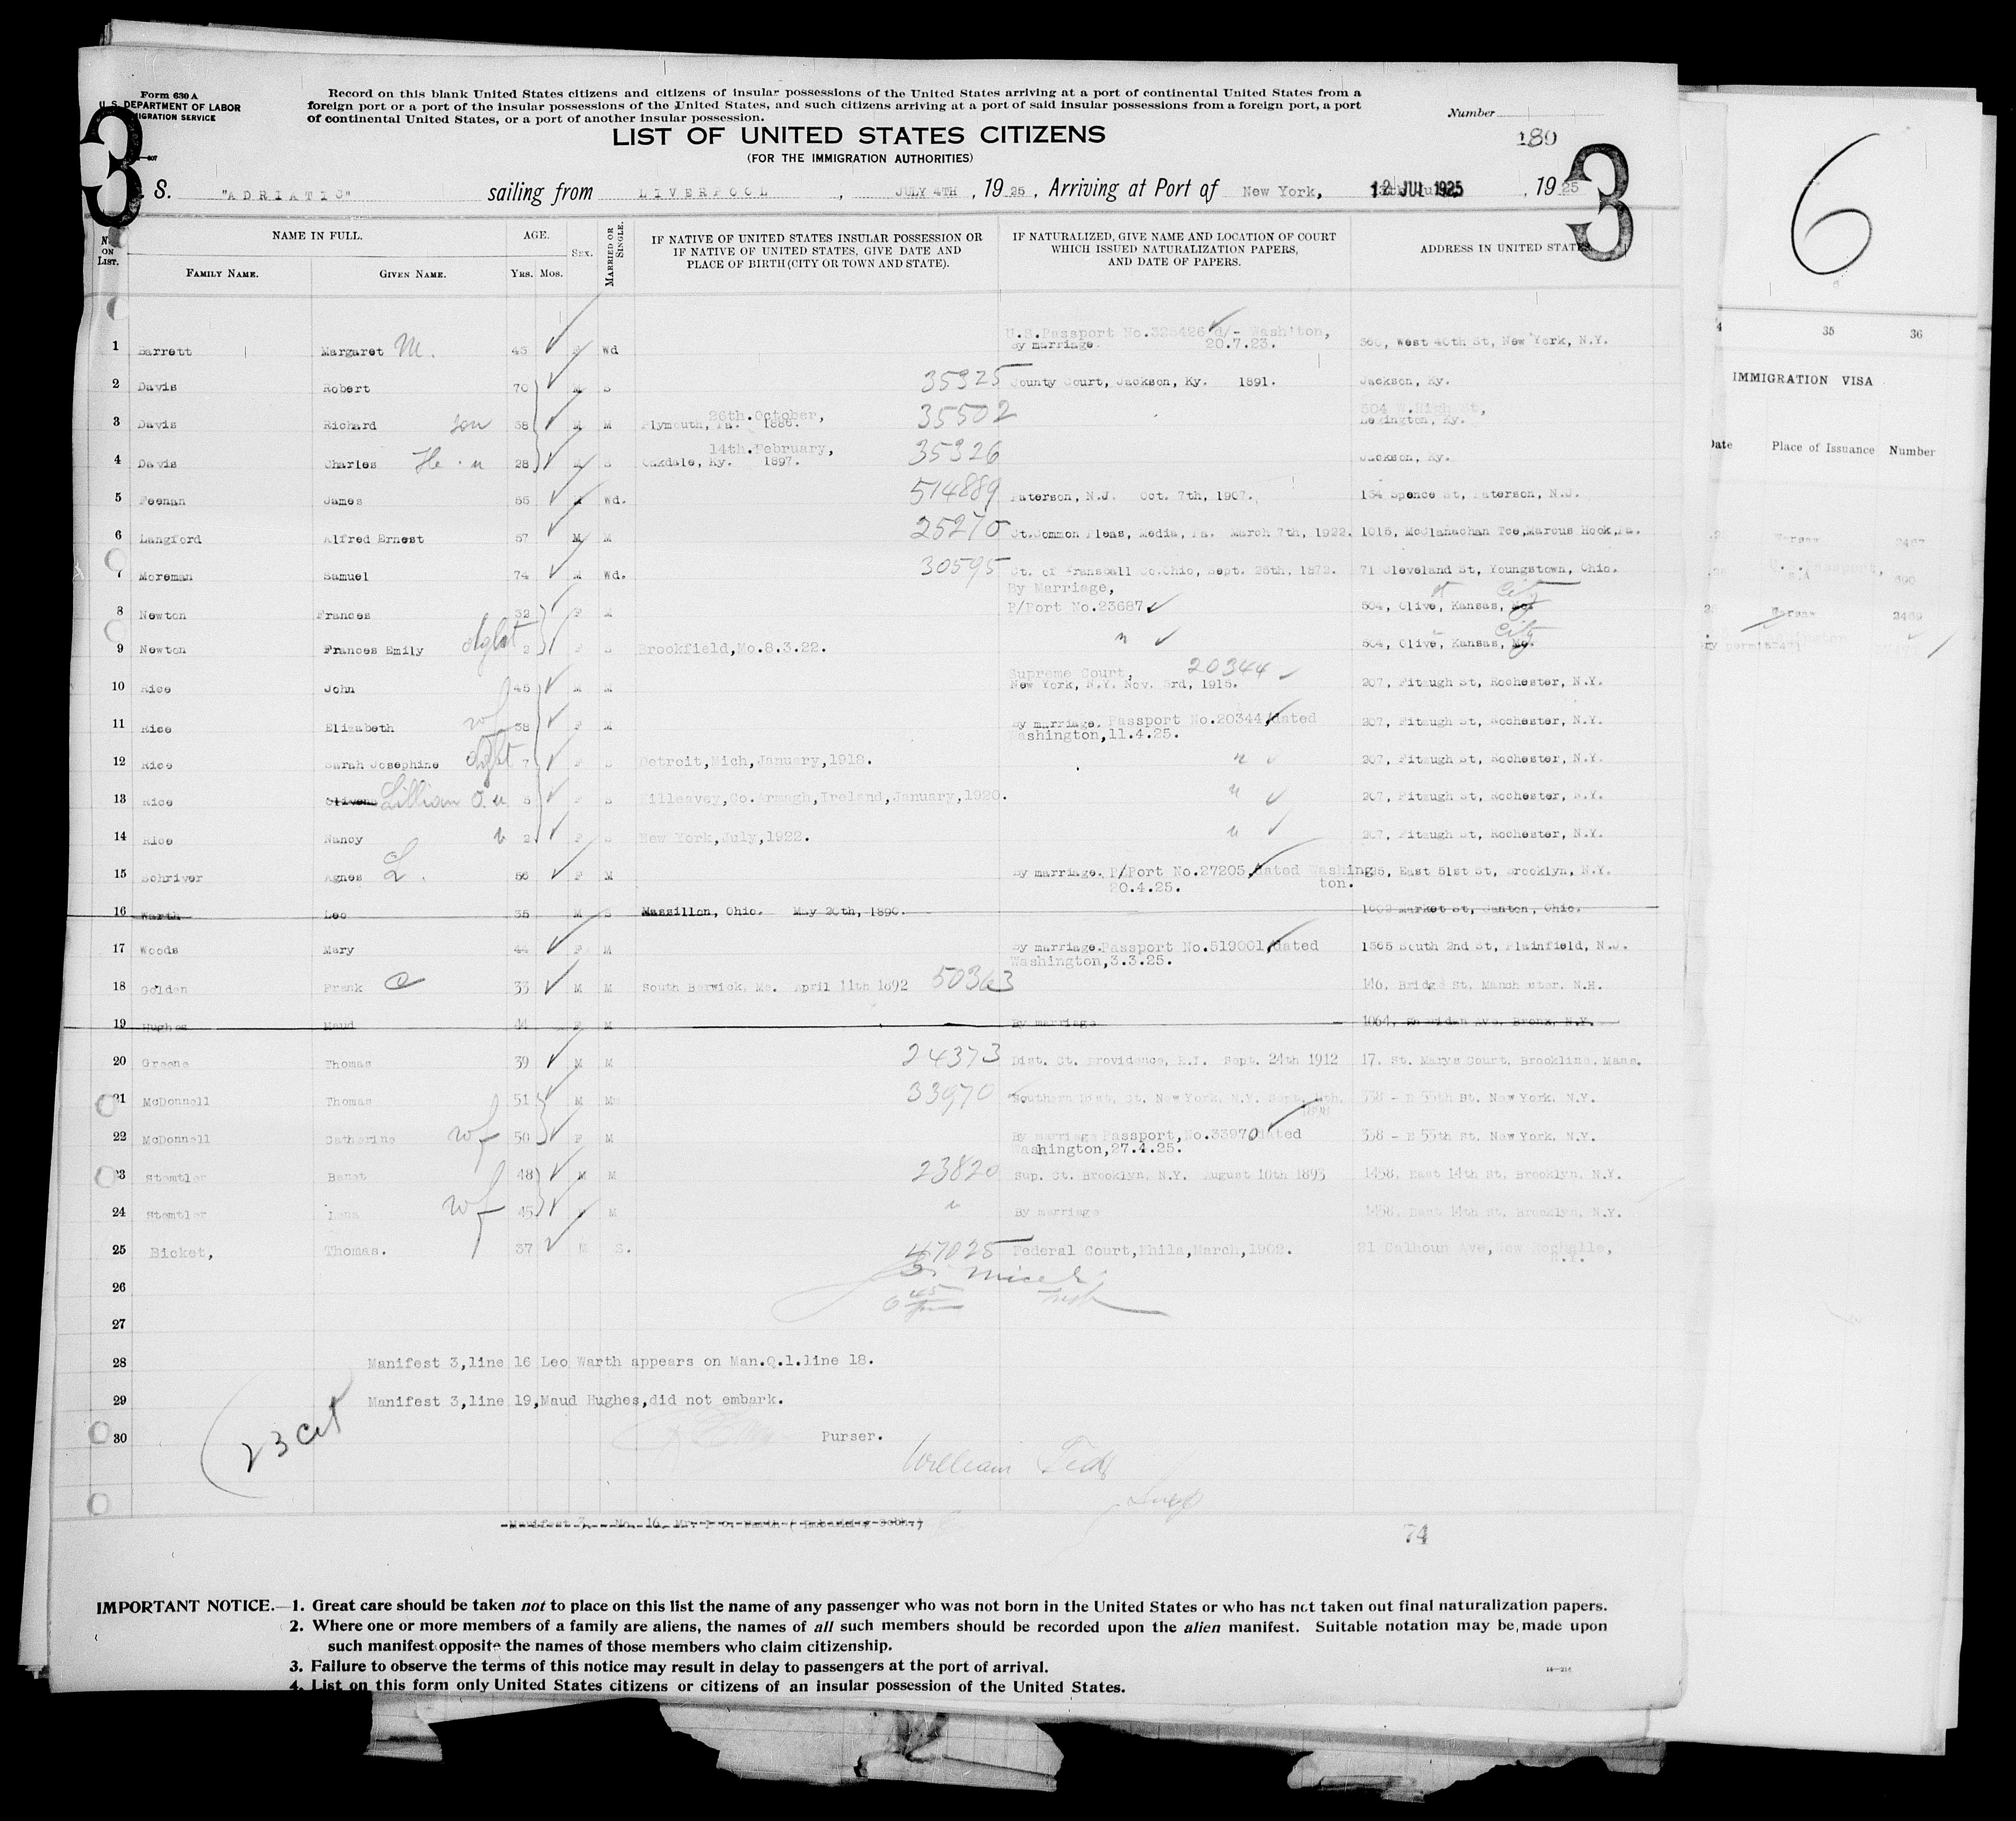 Form 630 A
U. S. DEPARTMENT OF LABOR
IMMIGRATION SERVICE
Record on this blank United States citizens and citizens of insular possessions of the United States arriving at a port of continental United States from a
foreign port or a port of the insular possessions of the United States, and such citizens arriving at a port of said insular possessions from a foreign port, a port
of continental United States, or a port of another insular possession.
Number
LIST OF UNITED STATES CITIZENS
(FOR THE IMMIGRATION AUTHORITIES)
189
3 3 6
S. "ADRIATIC" sailing from LIVERPOOL, JULY 4TH, 1925, Arriving at Port of New York, 12 JUL 1925, 1925
No. ON LIST. NAME IN FULL. AGE. SEX. MARRIED OR SINGLE. IF NATIVE OF UNITED STATES INSULAR POSSESSION OR IF NATIVE OF UNITED STATES, GIVE DATE AND PLACE OF BIRTH (CITY OR TOWN AND STATE). IF NATURALIZED, GIVE NAME AND LOCATION OF COURT WHICH ISSUED NATURALIZATION PAPERS, AND DATE OF PAPERS. ADDRESS IN UNITED STATES
FAMILY NAME. GIVEN NAME. YRS. MOS.
1 Barrett Margaret M. 45 F Wd U.S.Passport No.325426 d/- Washiton, By marriage. 20.7.23. 360, West 40th St, New York, N.Y.
2 Davis Robert 70 M S 35325 County Court, Jackson, Ky. 1891. Jackson, Ky.
3 Davis Richard son 38 M M 26th.October, Plymouth, Pa. 1886. 35502 504 W.High St, Lexington, Ky.
4 Davis Charles 28 M S 14th.February, Oakdale, Ky. 1897. 35326 Jackson, Ky.
5 Feenan James 55 M Wd. 514889 Paterson, N.J. Oct. 7th, 1907. 134 Spence St, Paterson, N.J.
6 Langford Alfred Ernest 57 M M 25270 Ct.Common Pleas, Media, Pa. March 7th, 1922. 1015, McClanachan Tce,Marcus Hook,Pa.
7 Moreman Samuel 74 M Wd. 30595 Ct. of Co.Ohio, Sept. 1872. 71 Cleveland St, Youngstown, Ohio.
8 Newton Frances 32 F M By Marriage, P/Port No.23687 504, Olive, st Kansas, City Mo.
9 Newton Frances Emily dght 2 F S Brookfield,Mo.8.3.22. " 504, Olive, Kansas, City Mo.
10 Rice John 45 M M Supreme Court, 20344 New York, N.Y. Nov. 3rd, 1915. 207, Fitzugh St, Rochester, N.Y.
11 Rice Elizabeth wf 38 F M By marriage. Passport No.20344,dated Washington,11.4.25. 207, Fitzugh St, Rochester, N.Y.
12 Rice Sarah Josephine dght 7 F S Detroit,Mich,January,1918. " 207, Fitzugh St, Rochester, N.Y.
13 Rice Lillian O. " 5 F S Killeavey,Co.Armagh,Ireland,January,1920. " 207, Fitzugh St, Rochester, N.Y.
14 Rice Nancy " 2 F S New York,July,1922. " 207, Fitzugh St, Rochester, N.Y.
15 Schriver Agnes L. 56 F M By marriage. P/Port No.27205,dated Washington. 20.4.25. East 51st St, Brooklyn, N.Y.
16 Warth Leo 35 M S Massillon, Ohio. May 20th, 1890. 1602 Market St, Canton, Ohio.
17 Woods Mary 44 F M By marriage.Passport No.519001,dated Washington,3.3.25. 1365 South 2nd St, Plainfield, N.J.
18 Golden Frank C 33 M M South Berwick, Me. April 11th 1892 50363 146, Bridge St, Manchester, N.H.
19 Hughes Maud 44 F M By marriage 1064, Sheridan Ave, Bronx, N.Y.
20 Greene Thomas 39 M M 24373 Dist. Ct. Providence, R.I. Sept. 24th 1912 17, St. Marys Court, Brookline, Mass.
21 McDonnell Thomas 51 M M 33970 Southern Dist. Ct. New York, N.Y. Sept. 1898 338 - E 55th St. New York, N.Y.
22 McDonnell Catherine wf 50 F M By marriage Passport,No.33970 dated Washington,27.4.25. 338 - E 55th St. New York, N.Y.
23 Stemtler Banet 48 M M 23820 Sup. Ct. Brooklyn, N.Y. August 10th 1893 1458, East 14th St, Brooklyn, N.Y.
24 Stemtler Lena wf 45 M " By marriage 1458, East 14th St, Brooklyn, N.Y.
25 Bicket, Thomas. 37 M S. 47025 Federal Court,Phila,March,1902. 21 Calhoun Ave,New Rochelle, N.Y.
26
27
28 Manifest 3,line 16 Leo Warth appears on Man.Q.1.line 18.
29 Manifest 3,line 19,Maud Hughes,did not embark.
30 Purser.
23 cit
William
Insp
Manifest 3, No. 16, Mr.
74
IMPORTANT NOTICE.—1. Great care should be taken not to place on this list the name of any passenger who was not born in the United States or who has not taken out final naturalization papers.
2. Where one or more members of a family are aliens, the names of all such members should be recorded upon the alien manifest. Suitable notation may be made upon
such manifest opposite the names of those members who claim citizenship.
3. Failure to observe the terms of this notice may result in delay to passengers at the port of arrival.
4. List on this form only United States citizens or citizens of an insular possession of the United States.
35 36
IMMIGRATION VISA
Date Place of Issuance Number
Warsaw 2467
U.S.Passport, 690
Warsaw 2469